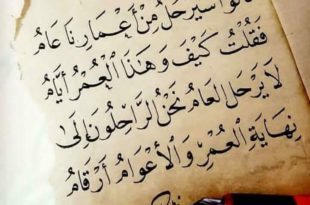 قالوا سيرحل من أعمارنا عام
فَقُلْتُ كَيْفَ وَهٰذَا الْعُمْرُ أَيَّامُ
لَا يَرْحَلُ العَامُ نَحْنُ الرَّاحِلُونَ إِلَى
نِهَايَةِ العُمْرِ وَالأَعْوَامُ أَرْقَامُ